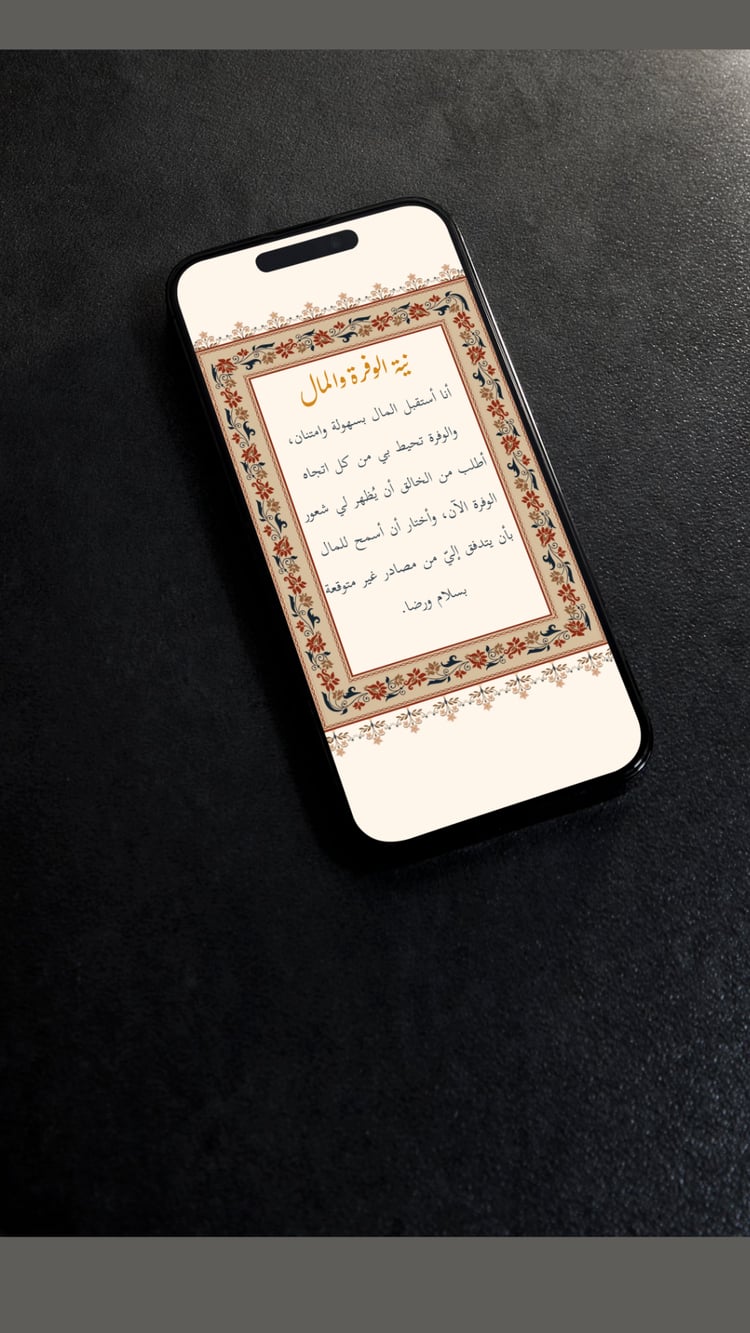 نية الوفرة والمال
أنا أستقبل المال بسهولة وامتنان،
والوفرة تحيط بي من كل اتجاه
أطلب من الخالق أن يُظهر لي شعور
الوفرة الآن، وأختار أن أسمح للمال
بأن يتدفق إليّ من مصادر غير متوقعة
بسلام ورضا.